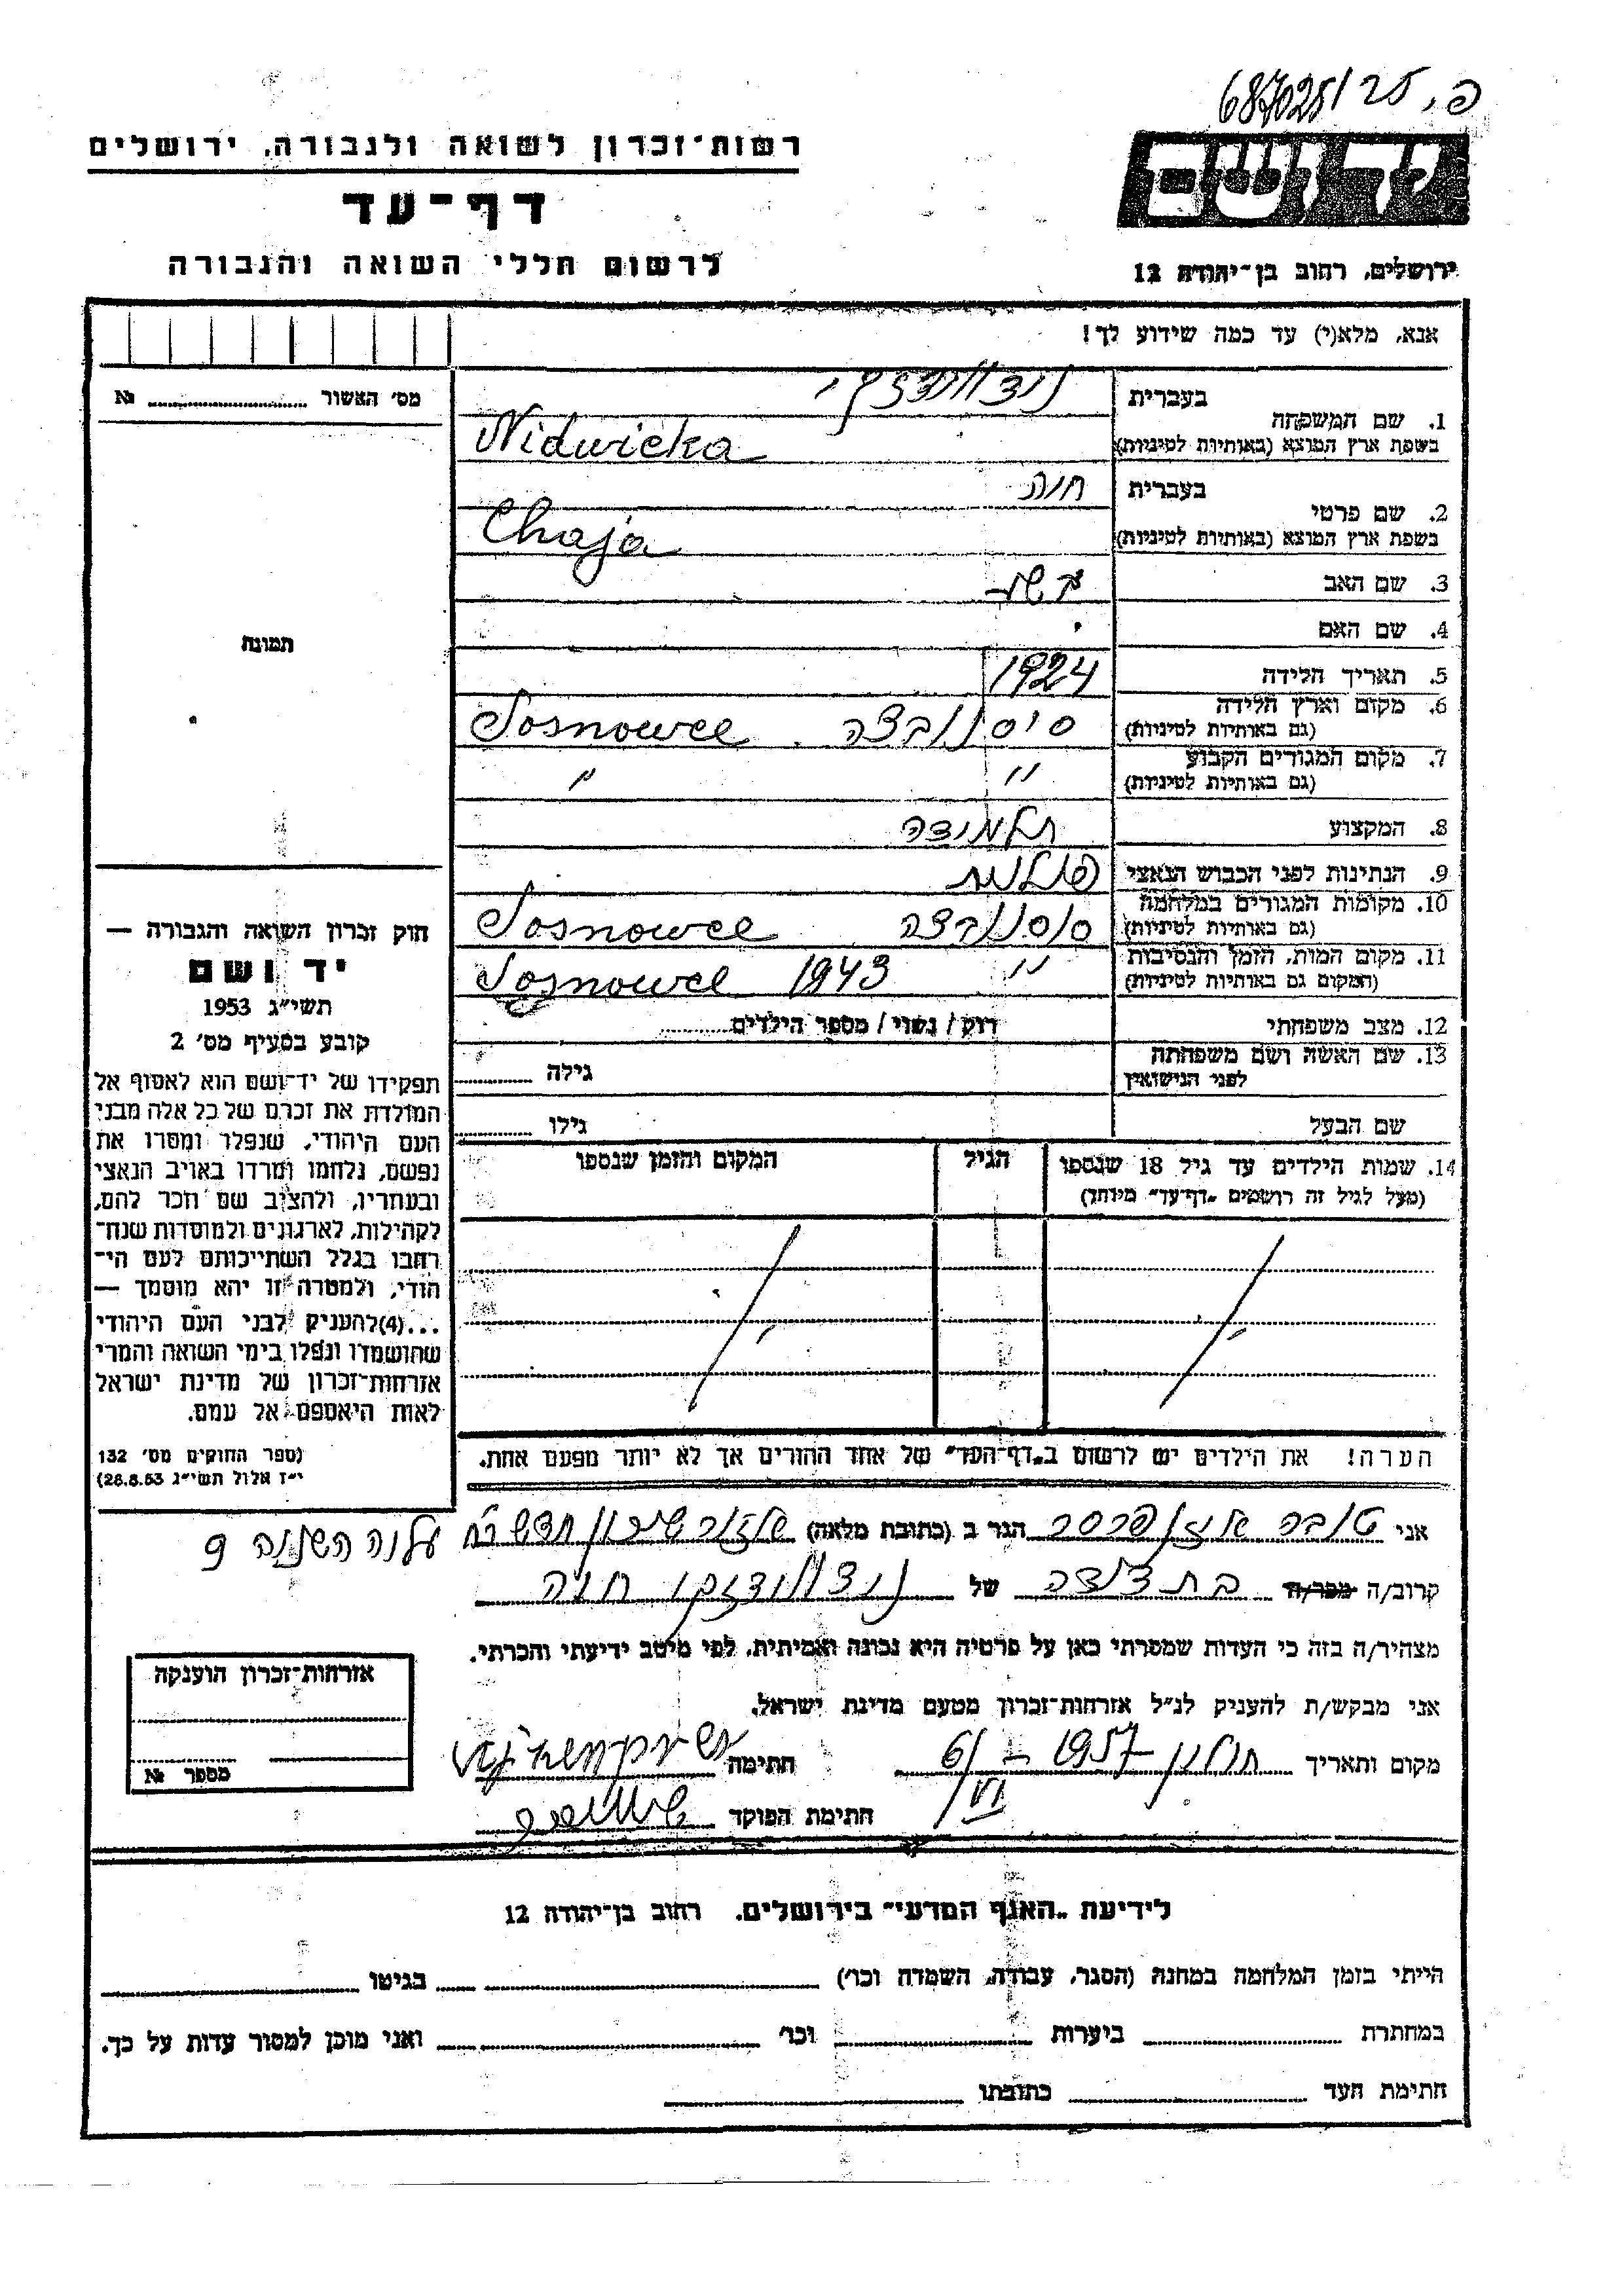 פ. 687025/25
רשות-זכרון לשואה ולגבורה, ירושלים
יד ושם
דף-עד
לרשום חללי השואה והגבורה
ירושלים, רחוב בן-יהודה 12
אנא, מלא(י) עד כמה שידוע לך!
מס׳ האשור № 
בעברית
1. שם המשפחה
בשפת ארץ המוצא (באותיות לטיניות) Nidwicka
בעברית חיה
2. שם פרטי
בשפת ארץ המוצא (באותיות לטיניות) Chaja
3. שם האב
4. שם האם
תמונה
5. תאריך הלידה 1924
6. מקום וארץ הלידה Sosnowce
(גם באותיות לטיניות)
7. מקום המגורים הקבוע " "
(גם באותיות לטיניות)
8. המקצוע תלמידה
9. הנתינות לפני הכבוש הנאצי פולנית
10. מקומות המגורים במלחמה סוסנובצה Sosnowce
(גם באותיות לטיניות)
11. מקום המות, הזמן והנסיבות " 1943 Sosnowce
(המקום גם באותיות לטיניות)
12. מצב משפחתי רוק / נשוי / מספר הילדים
13. שם האשה ושם משפחתה גילה
לפני הנישואין
שם הבעל גילו
14. שמות הילדים עד גיל 18 שנספו הגיל המקום והזמן שנספו
(מעל לגיל זה רושמים „דף-עד" מיוחד)
הערה! את הילדים יש לרשום ב„דף-העד" של אחד ההורים אך לא יותר מפעם אחת.
חוק זכרון השואה והגבורה —
יד ושם
תשי"ג 1953
קובע בסעיף מס׳ 2
תפקידו של יד-ושם הוא לאסוף אל
המולדת את זכרם של כל אלה מבני
העם היהודי, שנפלו ומסרו את
נפשם, נלחמו ומרדו באויב הנאצי
ובעוזריו, ולהציב שם וזכר להם,
לקהילות, לארגונים ולמוסדות שנח-
רבו בגלל השתייכותם לעם הי-
הודי, ולמטרה זו יהא מוסמך —
...(4) להעניק לבני העם היהודי
שהושמדו ונפלו בימי השואה והמרי
אזרחות-זכרון של מדינת ישראל
לאות היאספם אל עמם.
(ספר החוקים מס׳ 132
י"ז אלול תשי"ג 28.8.53)
אני טובה הגר ב (כתובת מלאה)
קרוב/ה מכר/ה בת דודה של חיה
מצהיר/ה בזה כי העדות שמסרתי כאן על פרטיה היא נכונה ואמיתית, לפי מיטב ידיעתי והכרתי.
אני מבקש/ת להעניק לנ"ל אזרחות-זכרון מטעם מדינת ישראל.
מקום ותאריך חולון 1957 – 6/VI חתימה
חתימת הפוקד
אזרחות-זכרון הוענקה
מספר №
לידיעת „האגף המדעי" בירושלים, רחוב בן-יהודה 12
הייתי בזמן המלחמה במחנה (הסגר, עבודה, השמדה וכו׳) בגיטו
במחתרת ביערות וכו׳ ואני מוכן למסור עדות על כך.
חתימת העד כתובתו